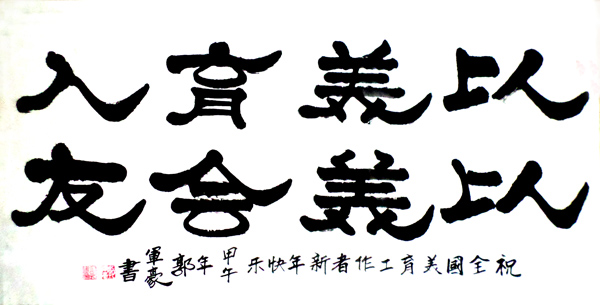 以美育人
以美会友
祝全國美育工作者新年快乐甲午年郭軍豪書